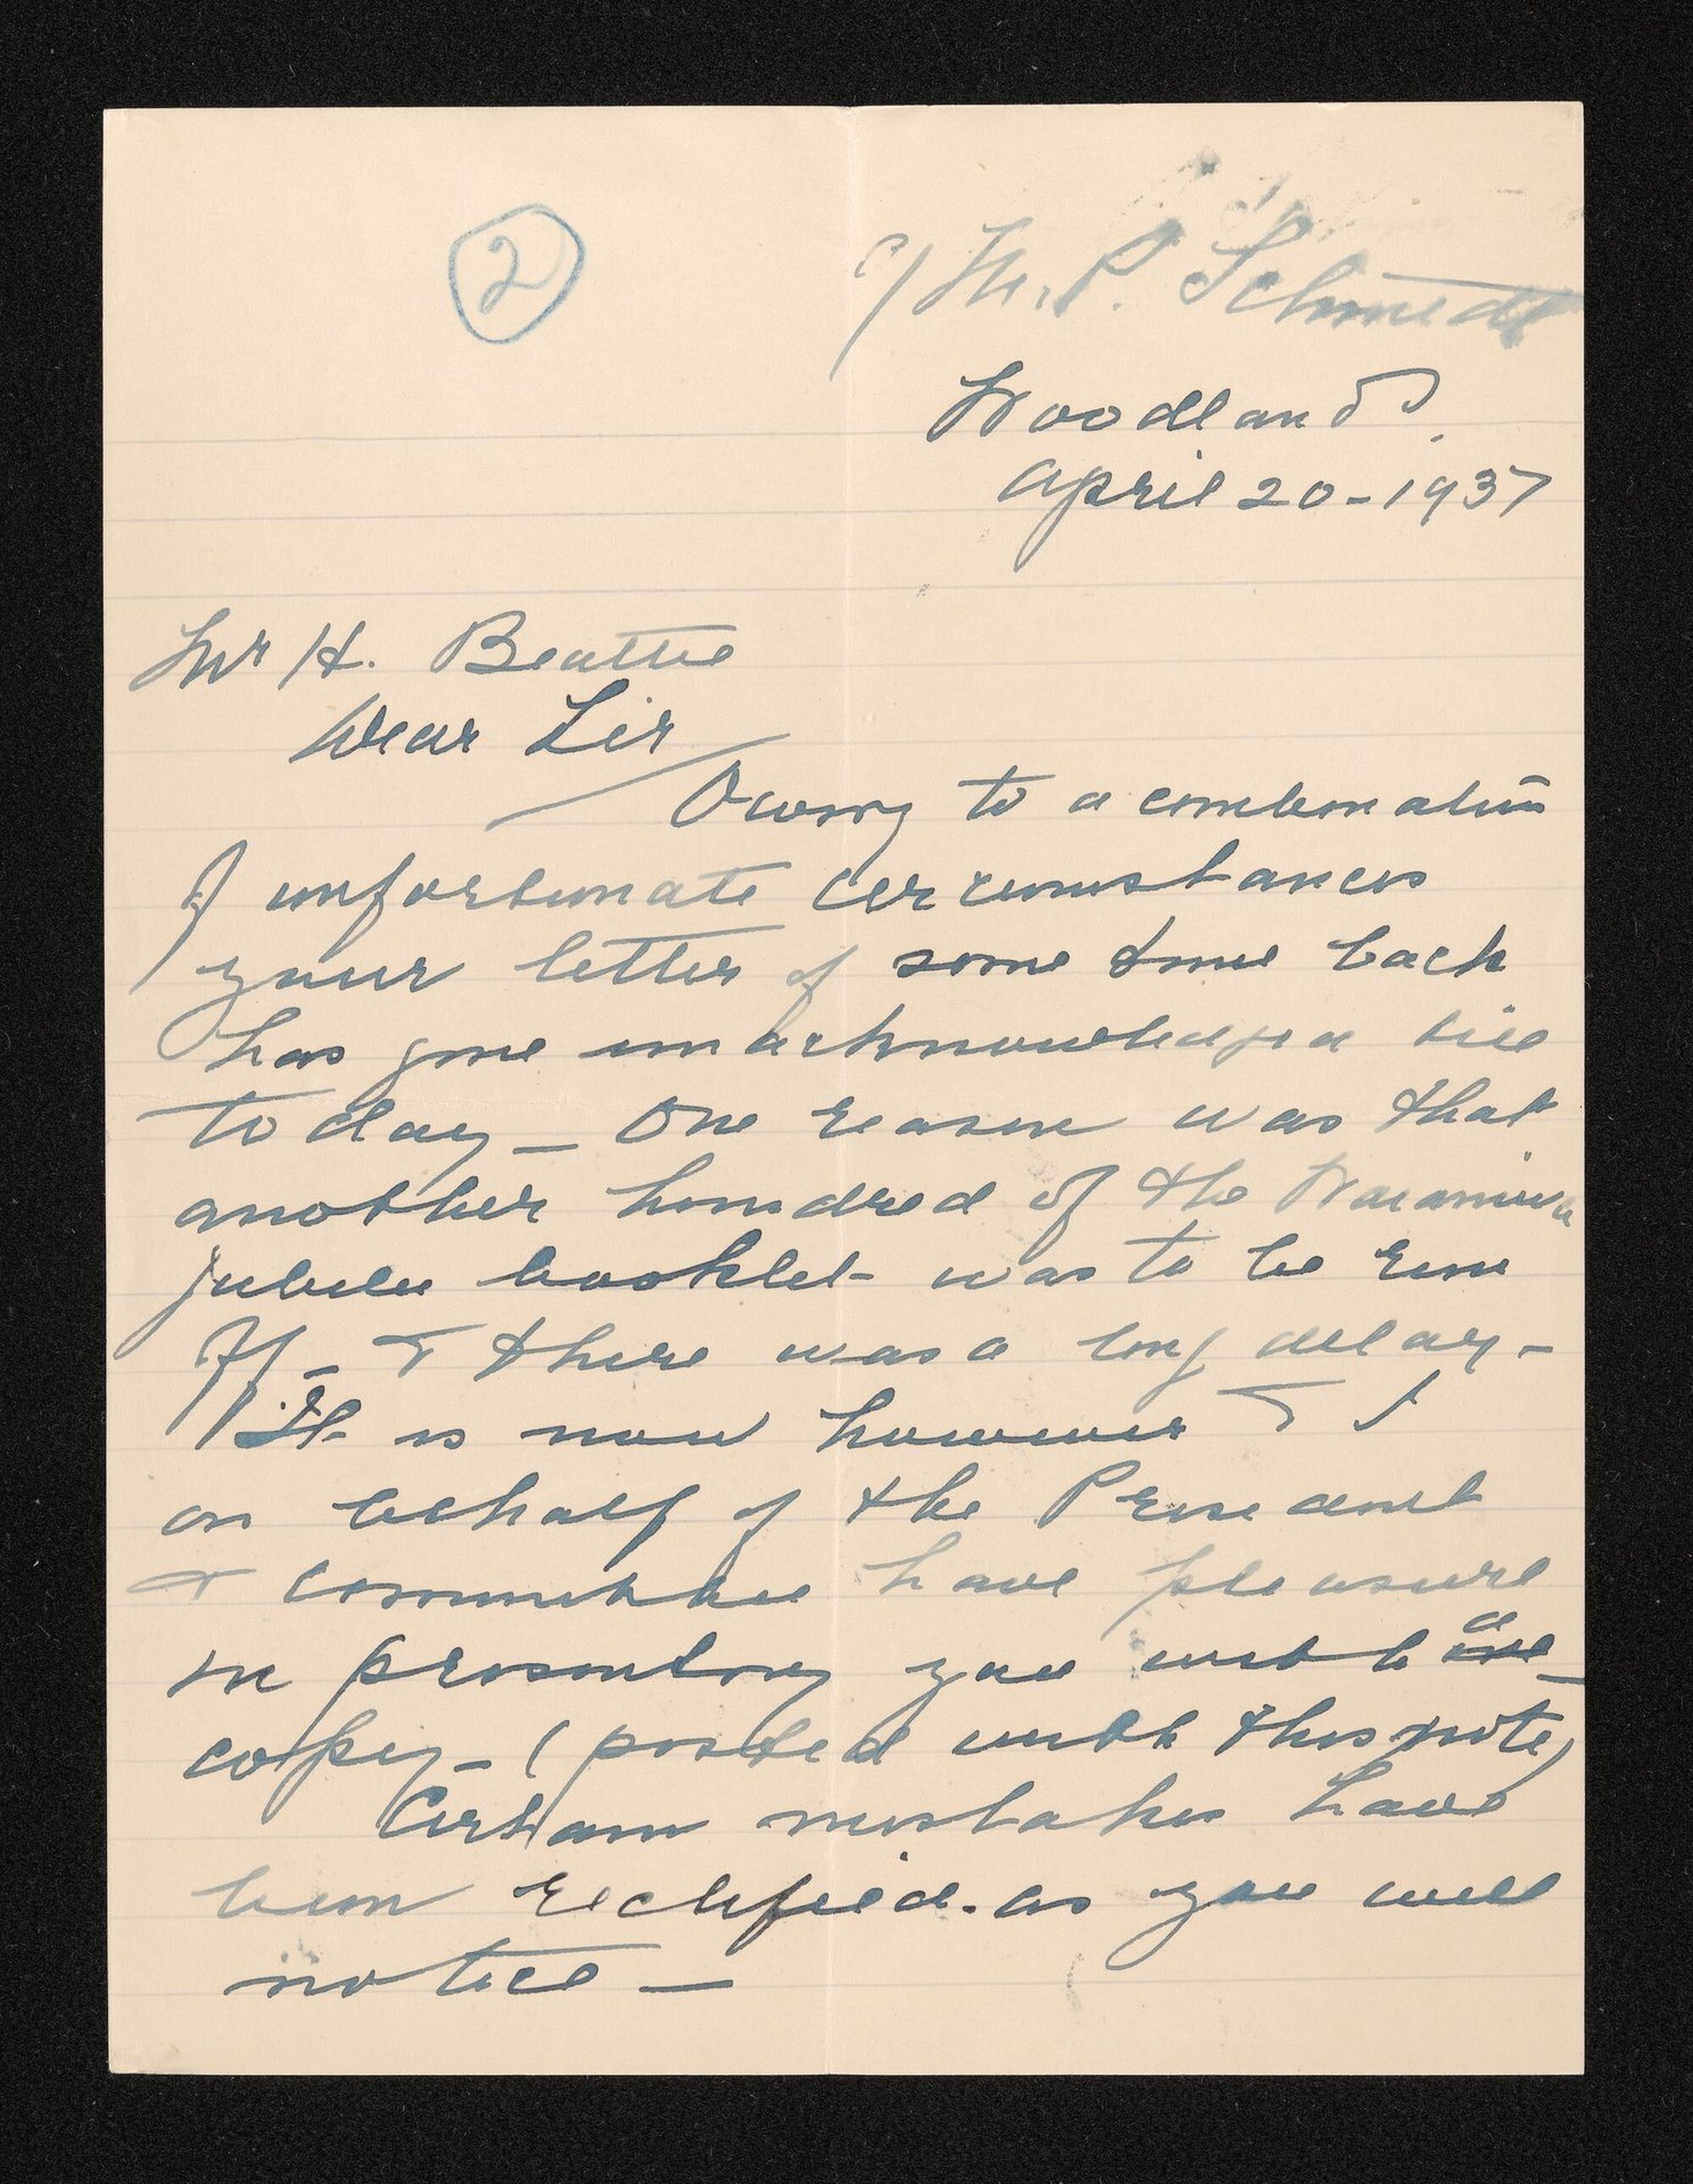 2
c/ Mr. P. Schmidt
Woodlands.
April 20 - 1937
Mr H. Beattie
Dear Sir
Owing to a combination
of unfortunate circumstances
your letter of some time back
has gone unacknowledged till
to day - One reason was that
another hundred of the Waianiwa
jubilee booklet was to be run
off - & there was a long delay -
It is now however & I
on behalf of the President
& committee have pleasure
in presenting you with a
copy - (posted with this note)
Certain mistakes have
been rectified. as you will
notice -